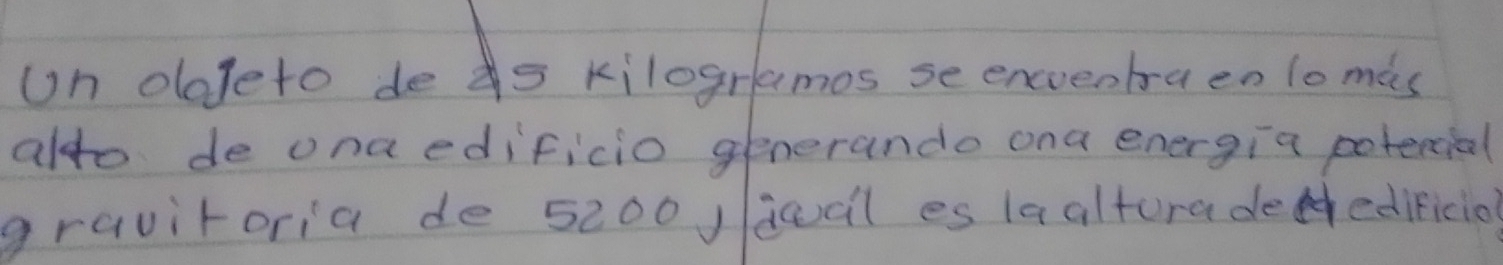 Un objeto de 45 Kilogramos se encuentra en lo más
alto de una edificio generando ona energía potencial
gravitoria de 5200 J ¿cuál es la altura del edificio?